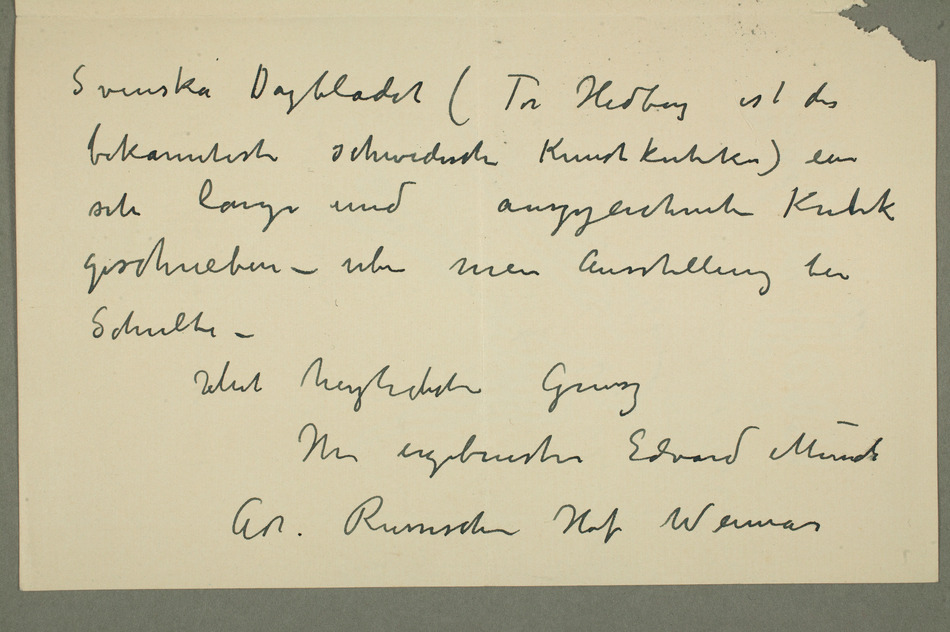 Svenska Dagbladet (Tor Hedberg ist der
bekannteste schwedische Kunstkritiker) ein
sehr lange und ausgezeichnete Kritik
geschrieben – uber mein Ausstellung bei
Schulte –
herzlichste Gruss
Ihr ergebenster Edvard Munch
Adr. Russischer Hof Weimar